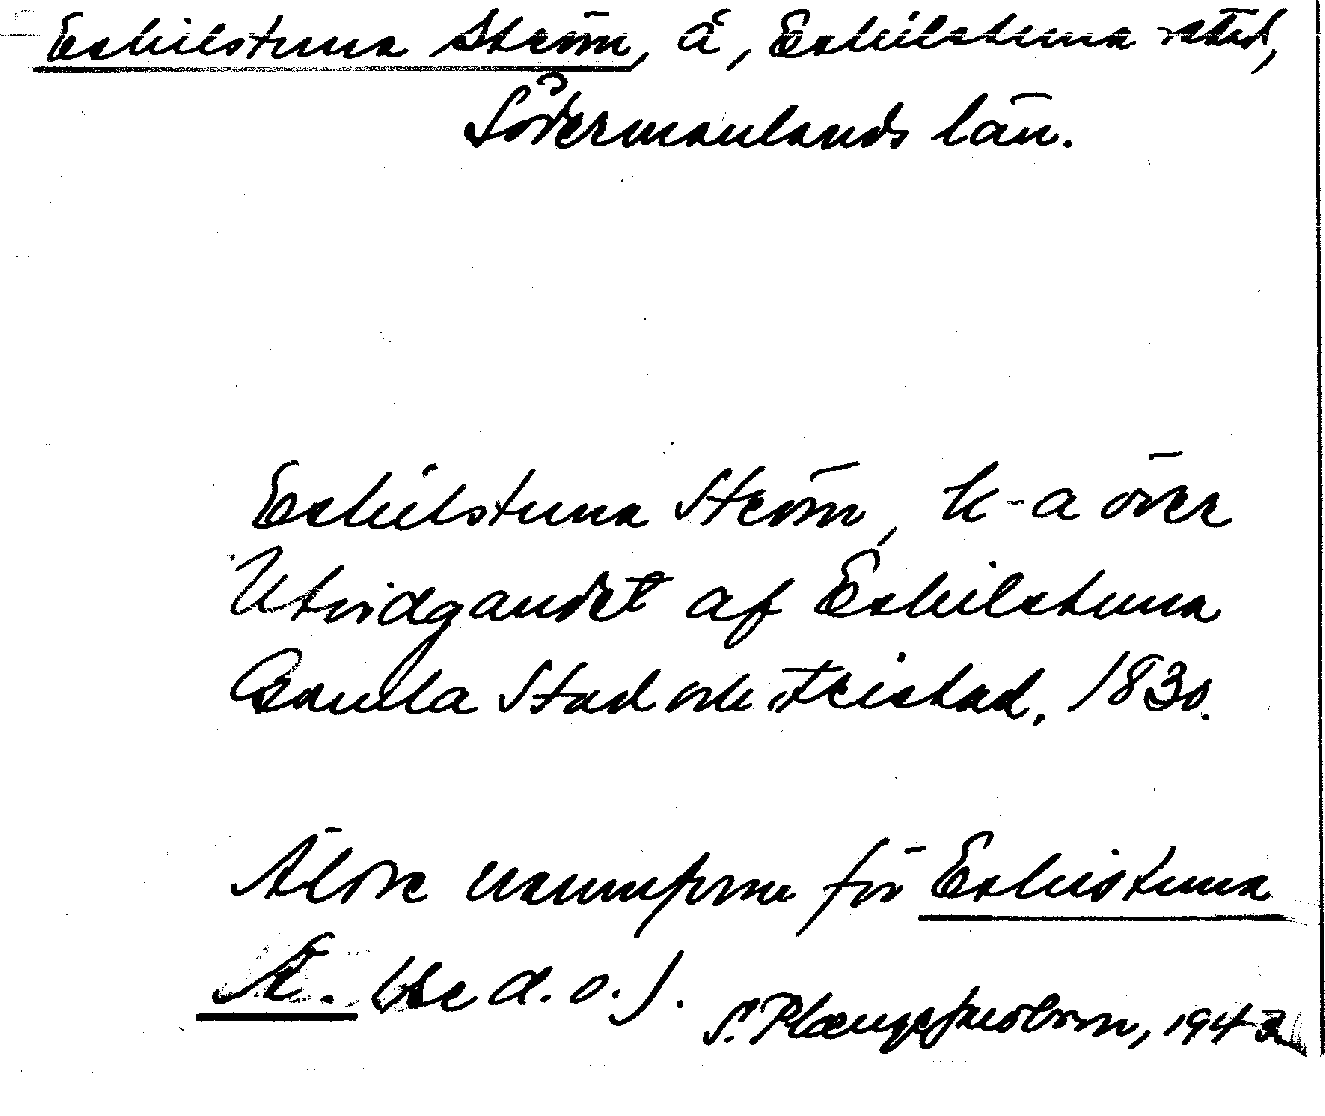 Eskilstuna Ström, å, Eskilstuna stad,
Södermanlands län.
Eskilstuna Ström, k-a över
Utvidgandet af Eskilstuna
Gamla Stad och Fristad, 1830.
Äldre namnform för Eskilstuna
Å. Se d. o.).
S. Plænge Jacobson, 1942